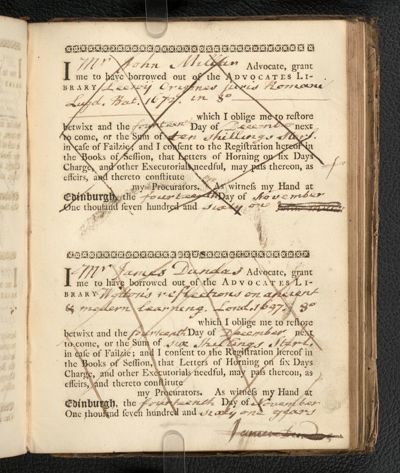 I Mr John Advocate, grant
me to have borrowed out of the ADVOCATES LI-
BRARY Origines juris Romani
Lugd. Bat. 1672. in 8o
which I oblige me to restore
betwixt and the fourteenth Day of December next
to come, or the Sum of ten shillings Sterl.
in case of Failzie; and I consent to the Registration hereof in
the Books of Session, that Letters of Horning on six Days
Charge, and other Executorials needful, may pass thereon, as
effeirs, and thereto constitute
my Procurators. As witness my Hand at
Edinburgh, the fourteenth Day of November
One thousand seven hundred and sixty one
I Mr James Dundas Advocate, grant
me to have borrowed out of the ADVOCATES LI-
BRARY Wotton's reflections on ancient
& modern Learning. Lond. 1697. 8o
which I oblige me to restore
betwixt and the fourteenth Day of December next
to come, or the Sum of six Shillings Sterl.
in case of Failzie; and I consent to the Registration hereof in
the Books of Session, that Letters of Horning on six Days
Charge, and other Executorials needful, may pass thereon, as
effeirs, and thereto constitute
my Procurators. As witness my Hand at
Edinburgh, the fourteenth Day of November
One thousand seven hundred and sixty one years